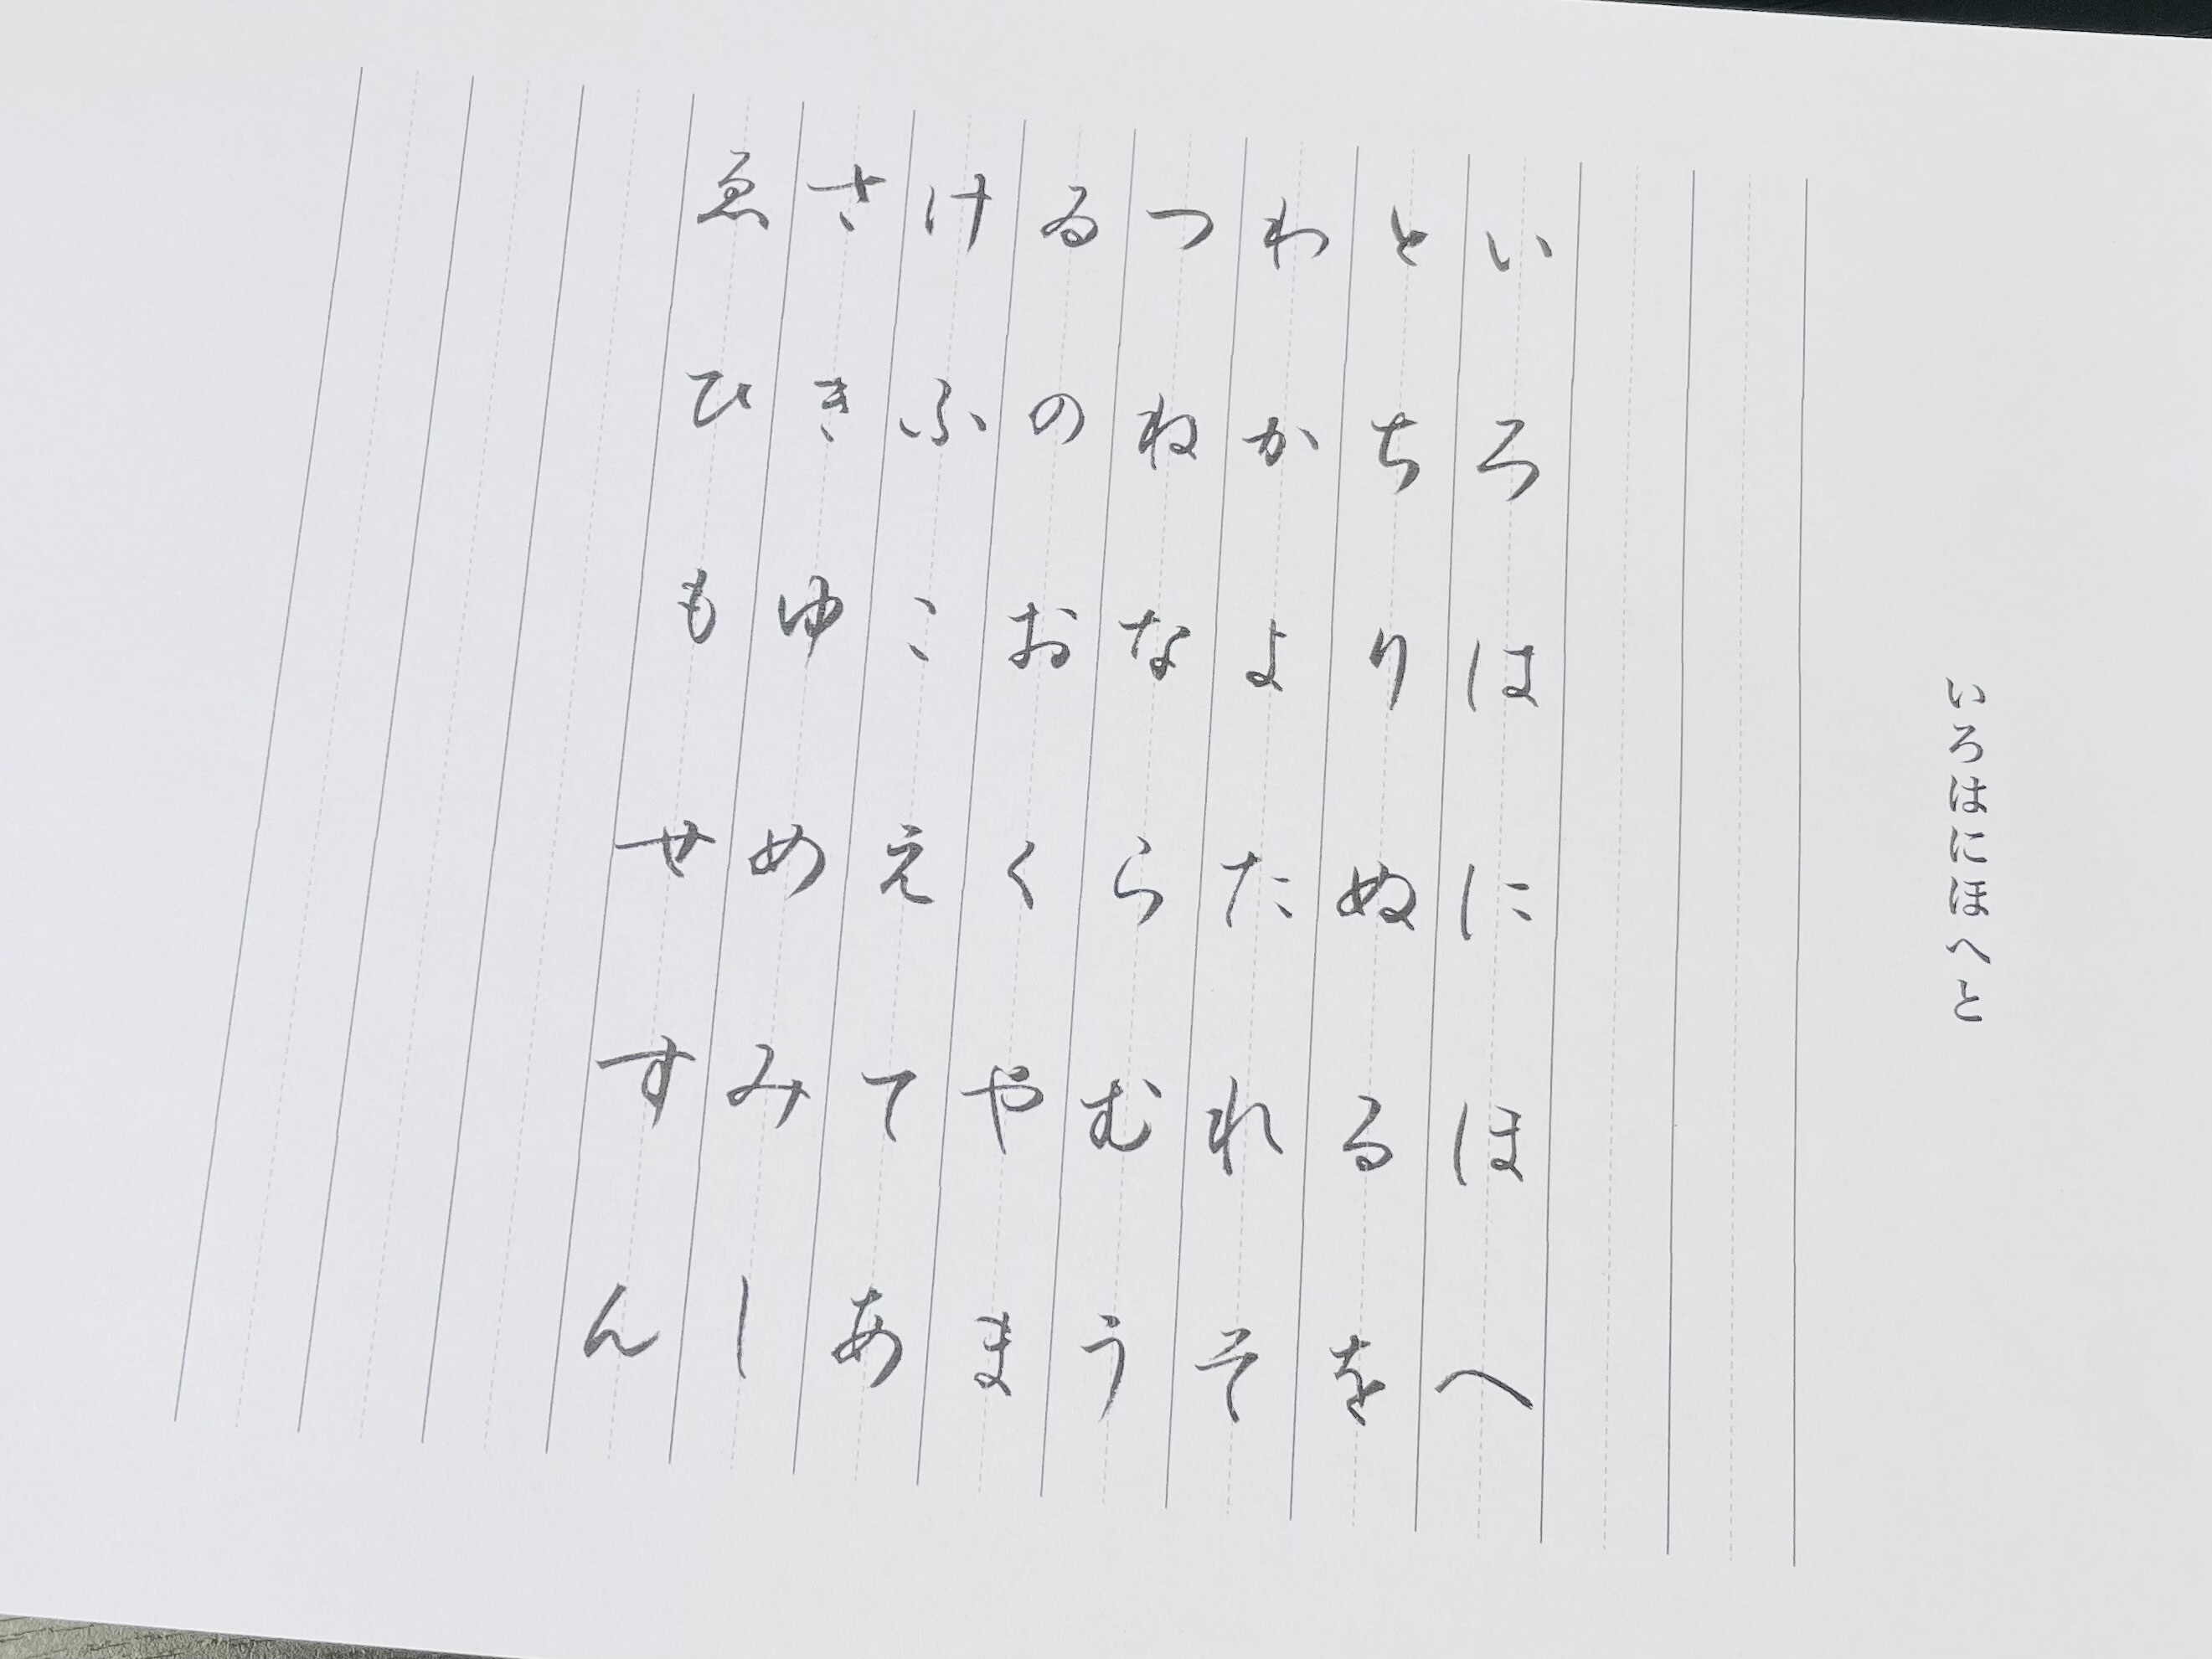 いろはにほへと
いろはにほへ
とちりぬるを
わかよたれそ
つねならむう
ゐのおくやま
けふこえてあ
さきゆめみし
ゑひもせすん